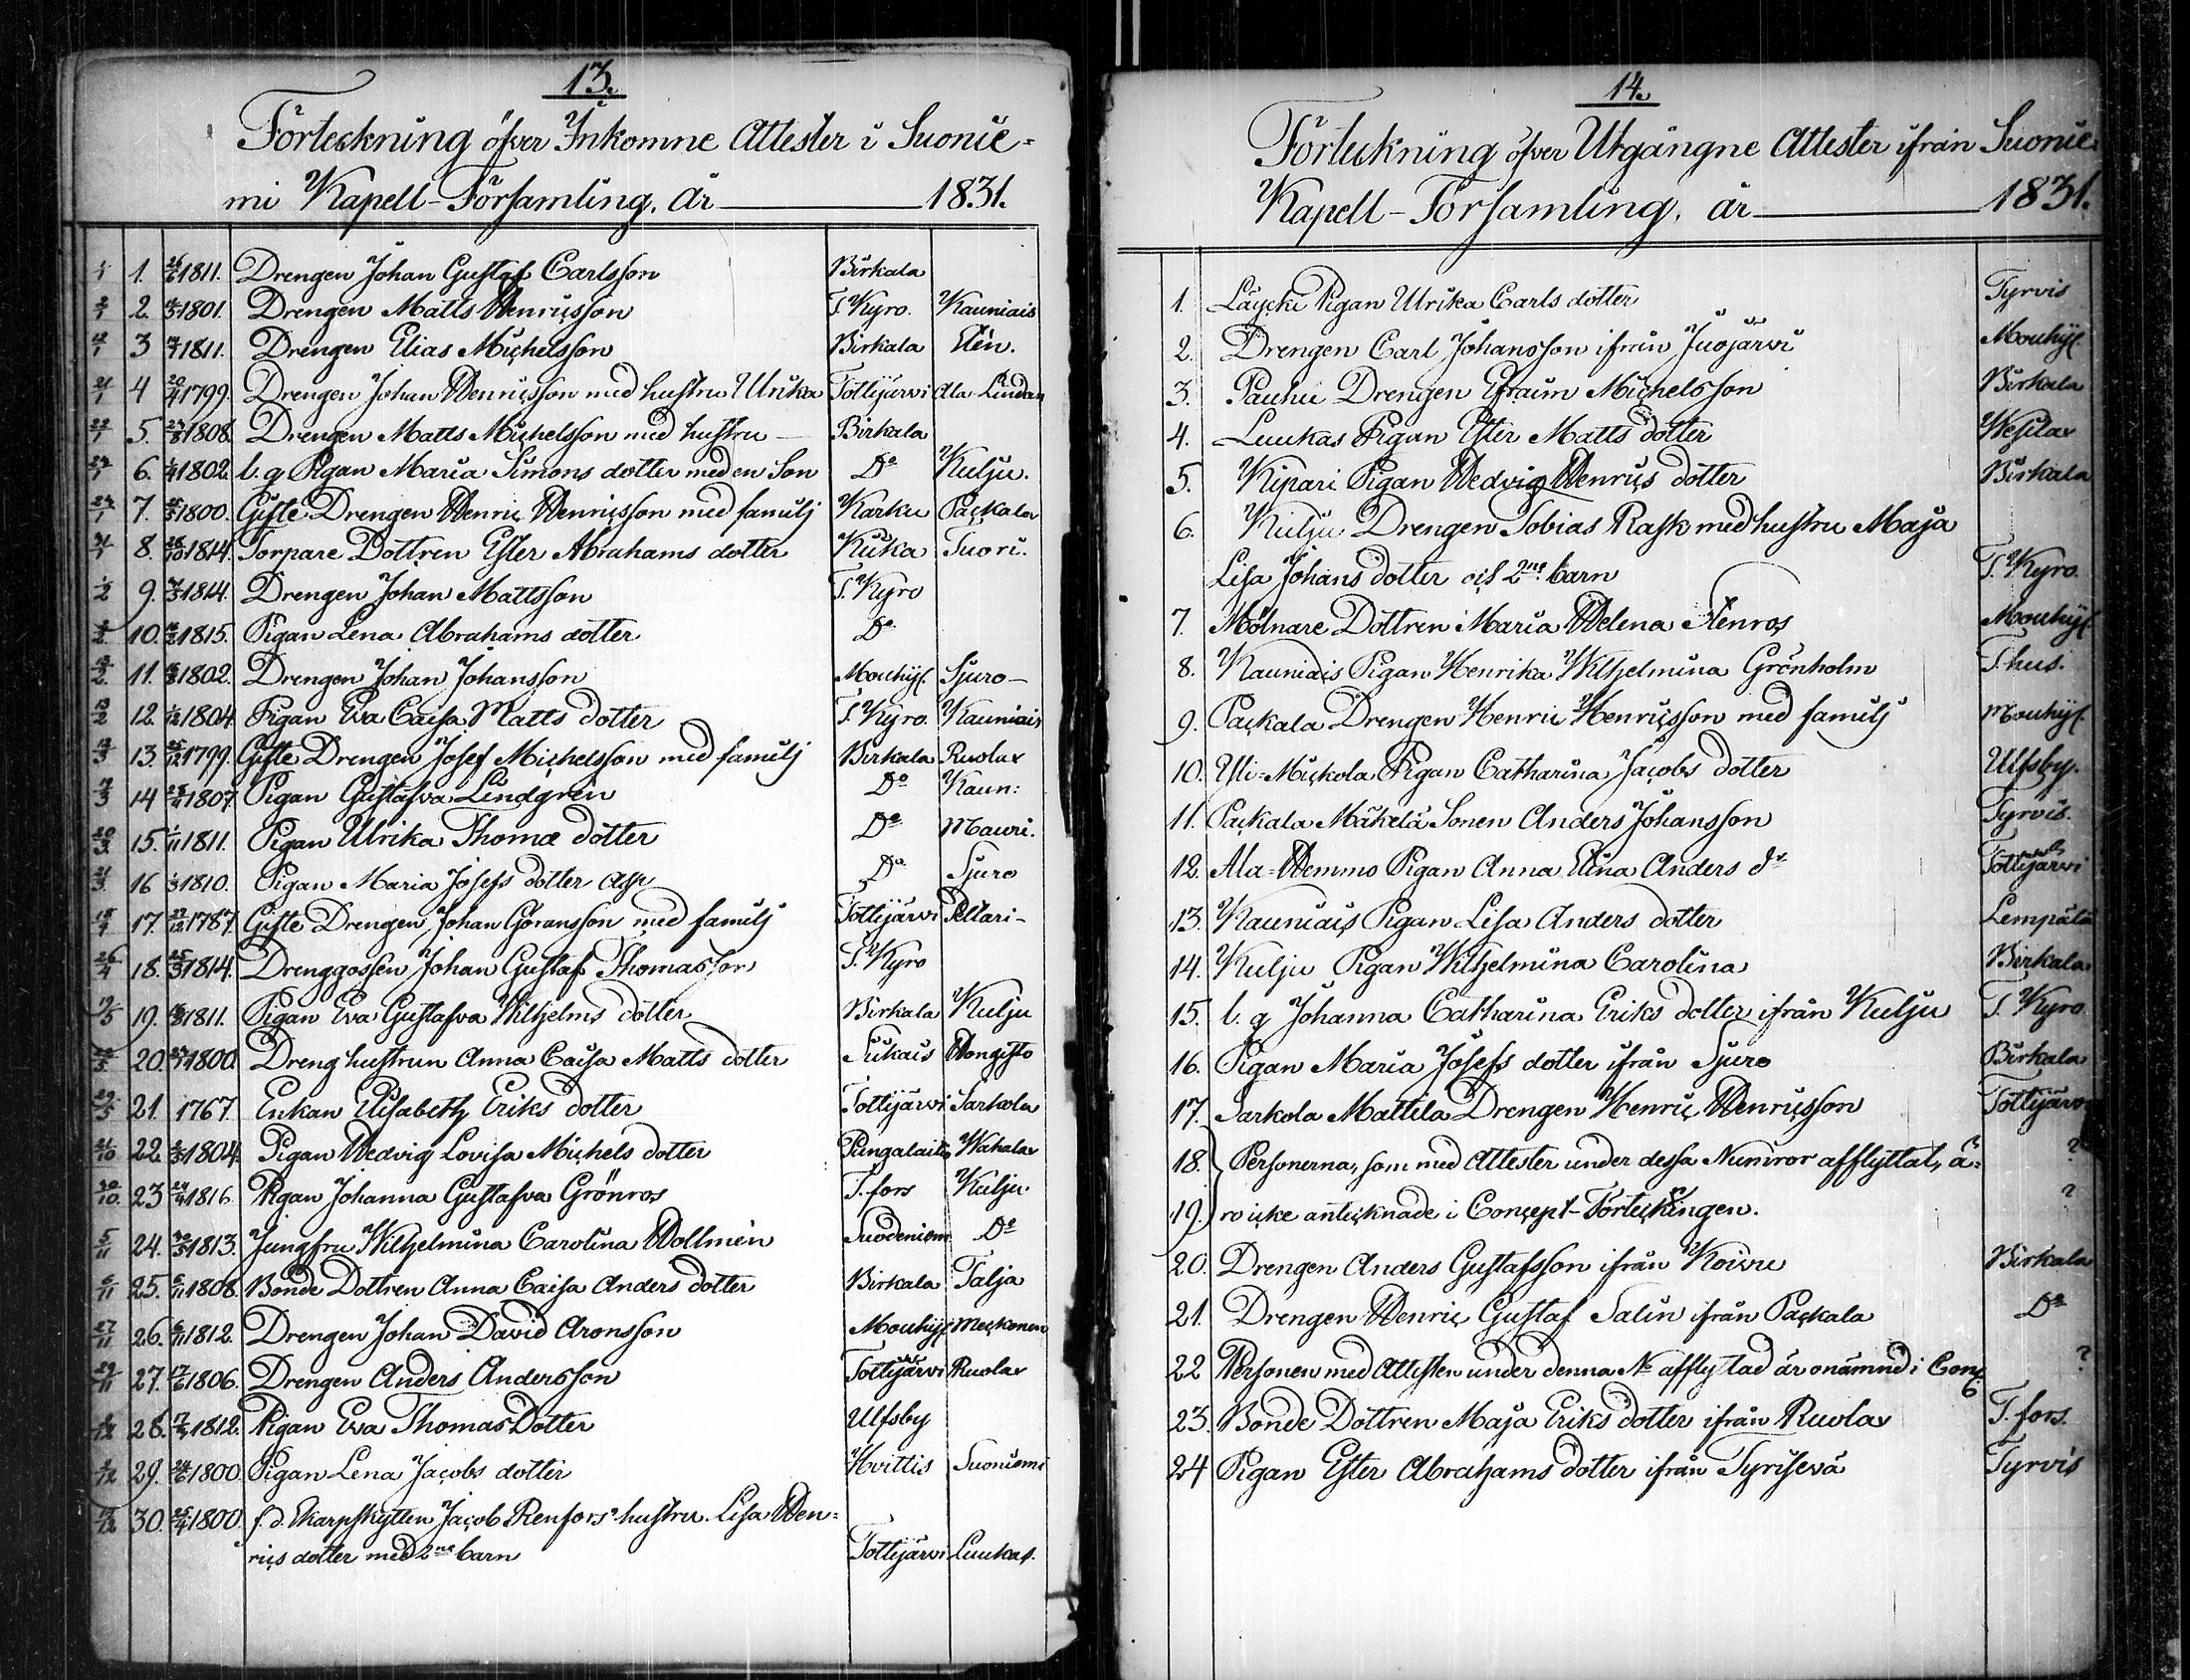 13.
Förteckning öfver Inkomne Attester i Suonie=
mi Kapell-Församling, år 1831.
1/1 1. 26/6 1811. Drengen Johan Gustaf Carlsson Birkala
2/1 2. 1801. Drengen Matts Henricsson T. Kyro. Kauniais
12/1 3 1811. Drengen Elias Michelsson Birkala Elen.
21/1 4 20/4 1799. Drengen Johan Henricsson med hustru Ulrika Tottijärvi Ala-Lindan
22/1 5. 24/5 1808. Drengen Matts Michelsson med hustru — Birkala
6. 1802. l. g Pigan Maria Simons dotter med en Son Do Kulju.
24/1 7. 1800. Gifte Drengen Henric Henricsson med familj Karku Packala
31/1 8. 1814. Torpare Dottren Ester Abrahams dotter Kuka Tuori.
1/2 9. 1814. Drengen Johan Mattsson T. Kyro
10. 1815. Pigan Lena Abrahams dotter Do
11. 1802. Drengen Johan Johansson Mouhij. Sjuro-
13/2 12. 1/12 1804. Pigan Eva Caisa Matts dotter T. Kyro. Kauniais
13. 25/12 1799. Gifte Drengen Josef Michelsson med familj Birkala Ruolax
14 1807. Pigan Gustafva Lindgren Do Kaun:
20/3 15. 1/11 1811. Pigan Ulrika Thomæ dotter Do Mauri.
21/3 16 1/3 1810. Pigan Maria Josefs dotter Asp Do Sjuro
17. 27/12 1787. Gifte Drengen Johan Göransson med familj Tottijärvi Pellari-
26/4 18. 25/3 1814. Drenggossen Johan Gustaf Thomasson T. Kyro
19/5 19. 1811. Pigan Eva Gustafva Wilhjelms dotter Birkala Kulju
20. 1800. Dreng hustrun Anna Caisa Matts dotter Siikais Hongisto
29/5 21. 1767. Enkan Elisabeth Eriks dotter Tottijärvi Sarkola
21/10 22. 1804. Pigan Hedvig Lovisa Michels dotter Pungalaitio Wahalax
30/10. 23 24/4 1816. Pigan Johanna Gustafva Grönros T.fors Kulju
5/11 24. 30/5 1813. Jungfru Wilhjelmina Carolina Hollmén Suodeniem Do
6/11 25. 6/11 1808. Bonde Dottren Anna Caisa Anders dotter Birkala Talja
27/11 26. 6/11 1812. Drengen Johan David Aronsson Mouhij. Meckonen
29/11 27. 17/6 1806. Drengen Anders Andersson Tottijärvi Ruolax
28. 1812. Pigan Eva Thomas Dotter Ulfsby
2/12 29. 24/6 1800. Pigan Lena Jacobs dotter Hvittis Suoniemi
30. 25/4 1800. f. d. Skarpskytten Jacob Renfors hustru Lisa Hen=
rics dotter med 2ne barn Tottijärvi Luukas.
14.
Förteckning öfver Utgångne Attester ifrån Suonie.
Kapell-Församling, år 1831.
1. Läycki Pigan Ulrika Carls dotter Tyrvis
2. Drengen Carl Johansson ifrån Juojärvi Mouhij.
3. Pauhu Drengen Efraim Michelsson Birkala
4. Luukas Pigan Ester Matts dotter Wesilax
5. Kipari Pigan Hedvig Henrics dotter Birkala
6. Kulju Drengen Tobias Rask med hustru Maja
Lisa Johans dotter och 2ne barn T. Kyro.
7. Mölnare Dottren Maria Helena Stenros Mouhij.
8. Kauniais Pigan Henrika Wilhjelmina Grönholm T.hus.
9. Packala Drengen Henric Henricsson med familj Mouhij.
10. Yli=Mickola Pigan Catharina Jacobs dotter Ulfsby.
11. Packala Mäkelä Sonen Anders Johansson Tyrvis.
12. Ala=Hemmo Pigan Anna Elina Anders dr Tottijärvi
13. Kauniais Pigan Lisa Anders dotter Lempälä
14. Kulju Pigan Wilhjelmina Carolina Birkala
15. l. g Johanna Catharina Eriks dotter ifrån Kulju T. Kyro
16. Pigan Maria Josefs dotter ifrån Sjuro Birkala
17. Sarkola Mattila Drengen Henric Henricsson Tottijärvi
18. Personerna, som med Attester under dessa Numror afflyttat, ä= ?
19. ro icke antecknade i Concept-Förteckningen. ?
20. Drengen Anders Gustafsson ifrån Koivu Birkala
21. Drengen Henric Gustaf Salin ifrån Packala Do
22 Personen med Attesten under denna No afflyttad är onämnd i Conc. ?
23. Bonde Dottren Maja Eriks dotter ifrån Ruolax T.fors.
24 Pigan Ester Abrahams dotter ifrån Tyrisevä Tyrvis